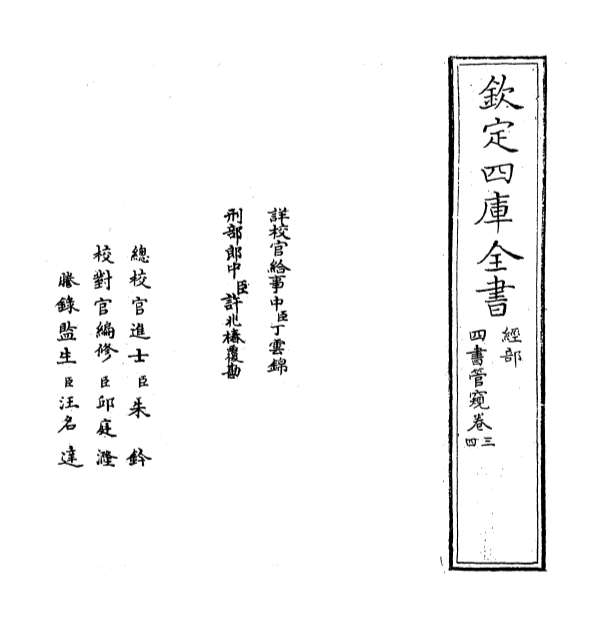 欽定四庫全書
經部
四書管窺卷三四
詳校官給事中臣丁雲錦
刑部郎中臣許兆椿覆勘
總校官進士臣朱鈐
校對官編修臣邱庭漋
謄錄監生臣汪名達